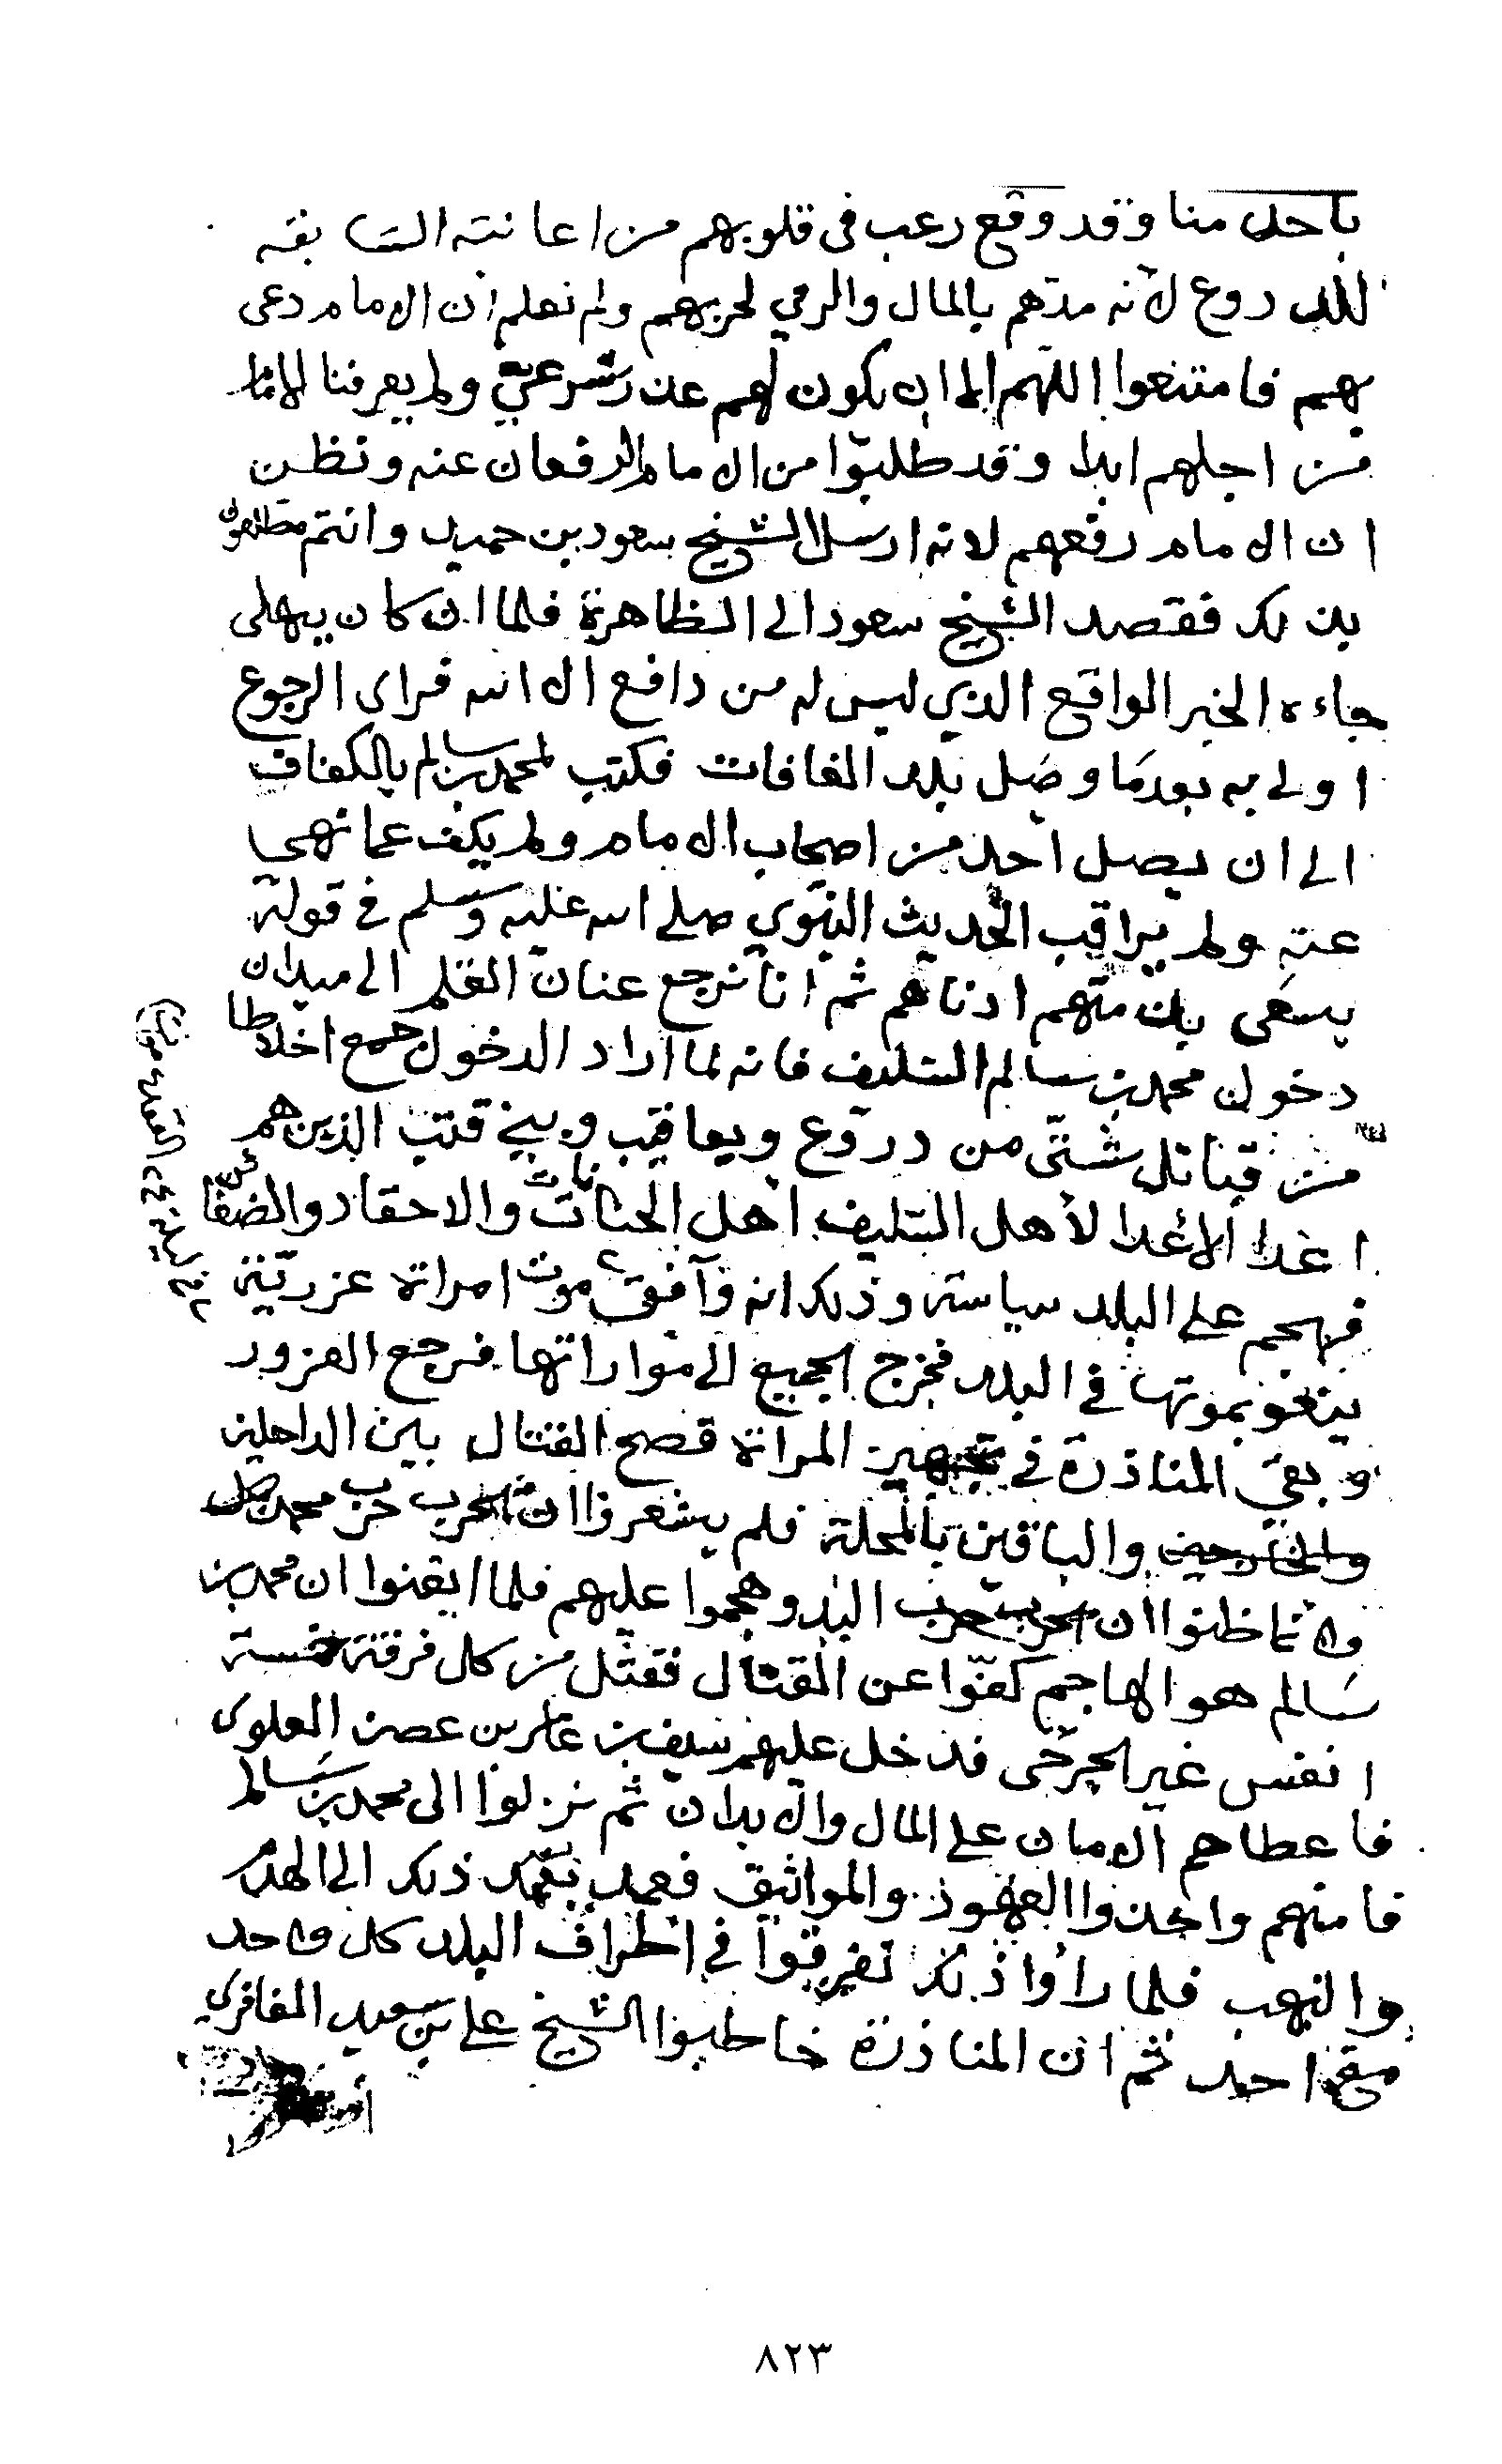 باحد منا وقد وقع رعب في قلوبهم من اعانته السابقه
للدروع لانه مدهم بالمال والرمي لحربهم ولم نعلم ان الامام دعى
بهم فامتنعوا اللهم الا ان يكون لهم عذر شرعي ولم يعرفنا الامام
من اجلهم ابدا وقد طلبوا من الامام الرفعان عنه ونظن
ان الامام رفعهم لانه ارسل الشيخ سعود بن حميد وانتم مطلعون
بذلك فقصد الشيخ سعود الى الظاهرة فلما ان كان بهلى
جاءه الخبر الواقع الذي ليس له من دافع الا الله فراى الرجوع
اولى به بعدما وصل بلد الغافات فكتب لمحمد بن سالم بالكفاف
الى ان يصل احد من اصحاب الامام ولم يكف عما نهي
عنه ولم يراقب الحديث النبوي صلى الله عليه وسلم في قوله
يسعى بذمتهم ادناهم ثم انا نرجع عنان القلم الى ميدان
دخول محمد بن سالم السليف فانه لما اراد الدخول جمع اخلاطا
من قبائل شتى من دروع ويعاقيب وبني قتب الذين هم
اعدا الاعدا لاهل السليف اهل الجنايات والاحقاد والضغائن
فهجم على البلد سياسة وذلك انه وافق موت امراة عزرية
ينعو بموتها في البلد فخرج الجميع الى مواراتها فرجع العزور
وبقي المناذرة في تجهيز المراة فصح القتال بين الداخلين
والباقين بالمحلة فلم يشعروا ان الحرب حرب محمد
وانما ظنوا ان حرب البلد وهجموا عليهم فلما ايقنوا ان محمد بن
سالم هو الهاجم كفوا عن القتال فقتل من كل فرقة خمسة
انفس غير الجرحى فدخل عليهم سيف بن عامر بن عصن العلوي
فاعطاهم الامان على المال والابدان ثم نزلوا الى محمد بن سالم
فامنهم واخذوا العهود والمواثيق فعمد بعد ذلك الى الهدم
والنهب فلما راوا ذلك تفرقوا في اطراف البلد كل واحد
مع احد ثم ان المناذرة خاطبوا الشيخ علي بن سعيد الغافري
٨٢٣